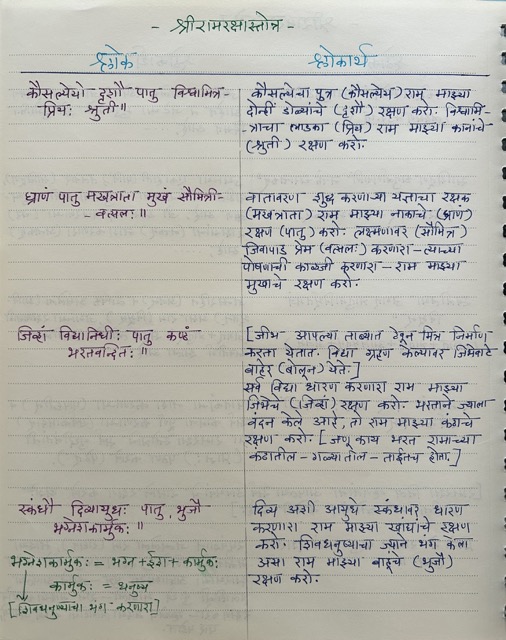 - श्रीरामरक्षास्तोत्र -
श्लोक
श्लोकार्थ
कौसल्येयो दृशौ पातु विश्वामित्र-
प्रियः श्रुती॥
कौसल्येचा पुत्र (कौसल्येय) राम माझ्या
दोन्ही डोळ्यांचे (दृशौ) रक्षण करो. विश्वामि-
त्राचा लाडका (प्रिय) राम माझ्या कानांचे
(श्रुती) रक्षण करो.
घ्राणं पातु मखत्राता मुखं सौमित्री-
- वत्सलः॥
वातावरण शुद्ध करणाऱ्या यज्ञाचा रक्षक
(मखत्राता) राम माझ्या नाकाचे (घ्राण)
रक्षण (पातु) करो. लक्ष्मणावर (सौमित्र)
जिवापाड प्रेम (वत्सलः) करणारा - त्याच्या
पोषणाची काळजी करणारा - राम माझ्या
मुखाचे रक्षण करो.
जिव्हां विद्यानिधीः पातु कण्ठं
भरतवन्दितः॥
[जीभ - आपल्या ताब्यात ठेवून मित्र निर्माण
करता येतात. विद्या ग्रहण केल्यावर जिभेवाटे
बाहेर (बोलून) येते.]
सर्व विद्या धारण करणारा राम माझ्या
जिभेचे (जिव्हां) रक्षण करो. भरताने ज्याला
वंदन केले आहे, तो राम माझ्या कंठाचे
रक्षण करो. [जणू काय भरत रामाच्या
कंठातील - गळ्यातील - ताईतच होता.]
स्कंधौ दिव्यायुधः पातु, भुजौ
भग्नेशकार्मुकः॥
भग्नेशकार्मुकः = भग्न + ईश + कार्मुकः
कार्मुकः = धनुष्य
[शिवधनुष्याचा भंग करणारा]
दिव्य अशी आयुधे स्कंधावर धारण
करणारा राम माझ्या खांद्यांचे रक्षण
करो. शिवधनुष्याचा ज्याने भंग केला
असा राम माझ्या बाहूंचे (भुजौ)
रक्षण करो.